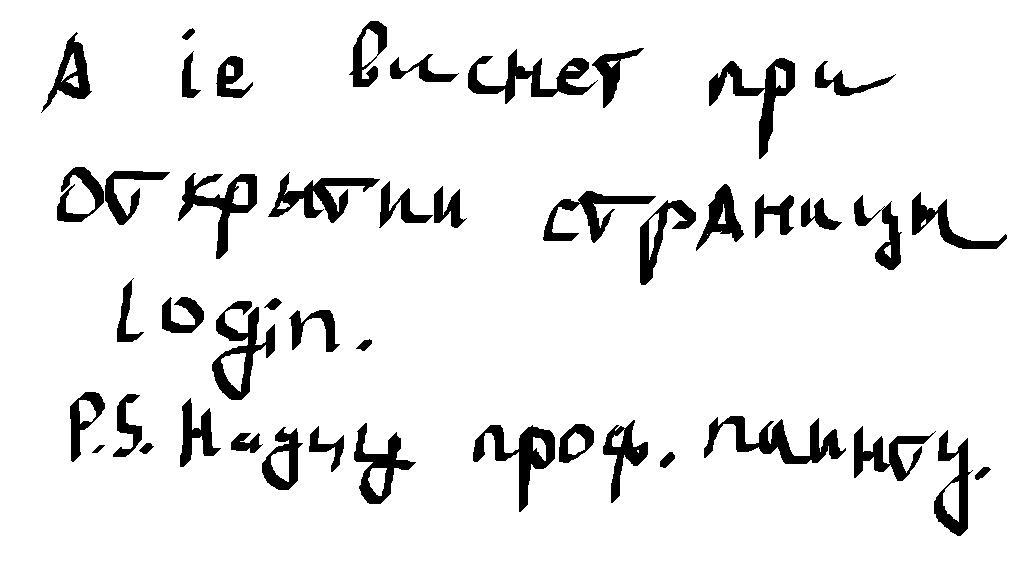 А ie виснет при
открытии страницы
login.
P.S. Научу проф. паинту.